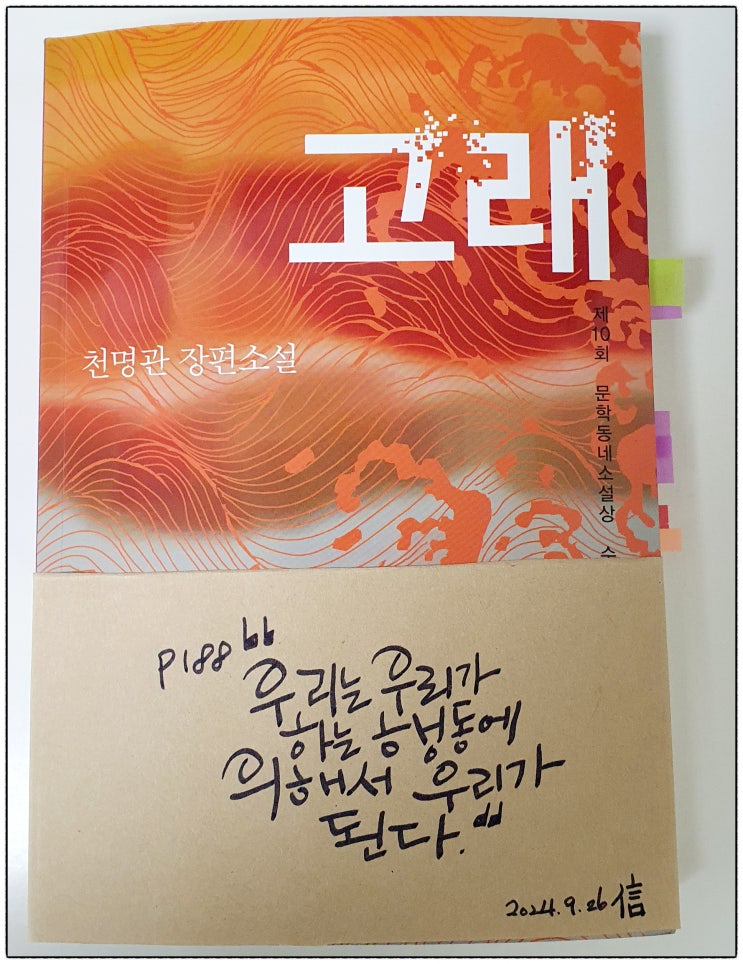 고래
천명관 장편소설
제10회 문학동네소설상 수
P188 "우리는 우리가
하는 행동에
의해서 우리가
된다."
2024.9.26 信